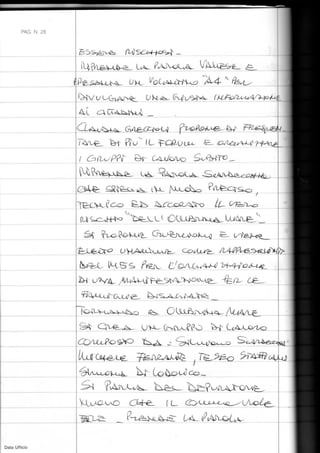 PAG. N. 28
ESSERE RISCHIOSI _
RIPRENDE LA PAROLA VARESE E
PRESENTA UN VOLANTINO "A4" PER
DIVULGARE UNA GIUSTA INFORMAZIONE
AI CITTADINI _
CLAUDIA GRECCIOLI PROPONE DI FREQUEN
TARE DI PIU' IL FORUM E ORGANIZZARE
I GRUPPI DI LAVORO SUBITO _
RIPRENDE LA PAROLA
CHE SPIEGA IN MODO PRECISO,
TECNICO ED ACCORATO IL VERO
RISCHIO "DELL' OLIMPIONA MARE"
SI PROPONE E VIENE
ELETTO UNANIME COME RAPPRESENTANTE
DEL M5S PER L'ORGANIZZAZIONE
DI UNA MANIFESTAZIONE PER LE
FAMIGLIE DISAGIATE _
TORNANDO A MARE
SI CREA UN GRUPPO DI LAVORO
COMPOSTO DA :
MICHELE , TESEO
SIMONA DI LODOVICO _
SI PARLA DEL DEPURATORE
NUOVO CHE IL COMUNE VUOLE
FARE _ PRENDE LA PAROLA
Data Ufficio